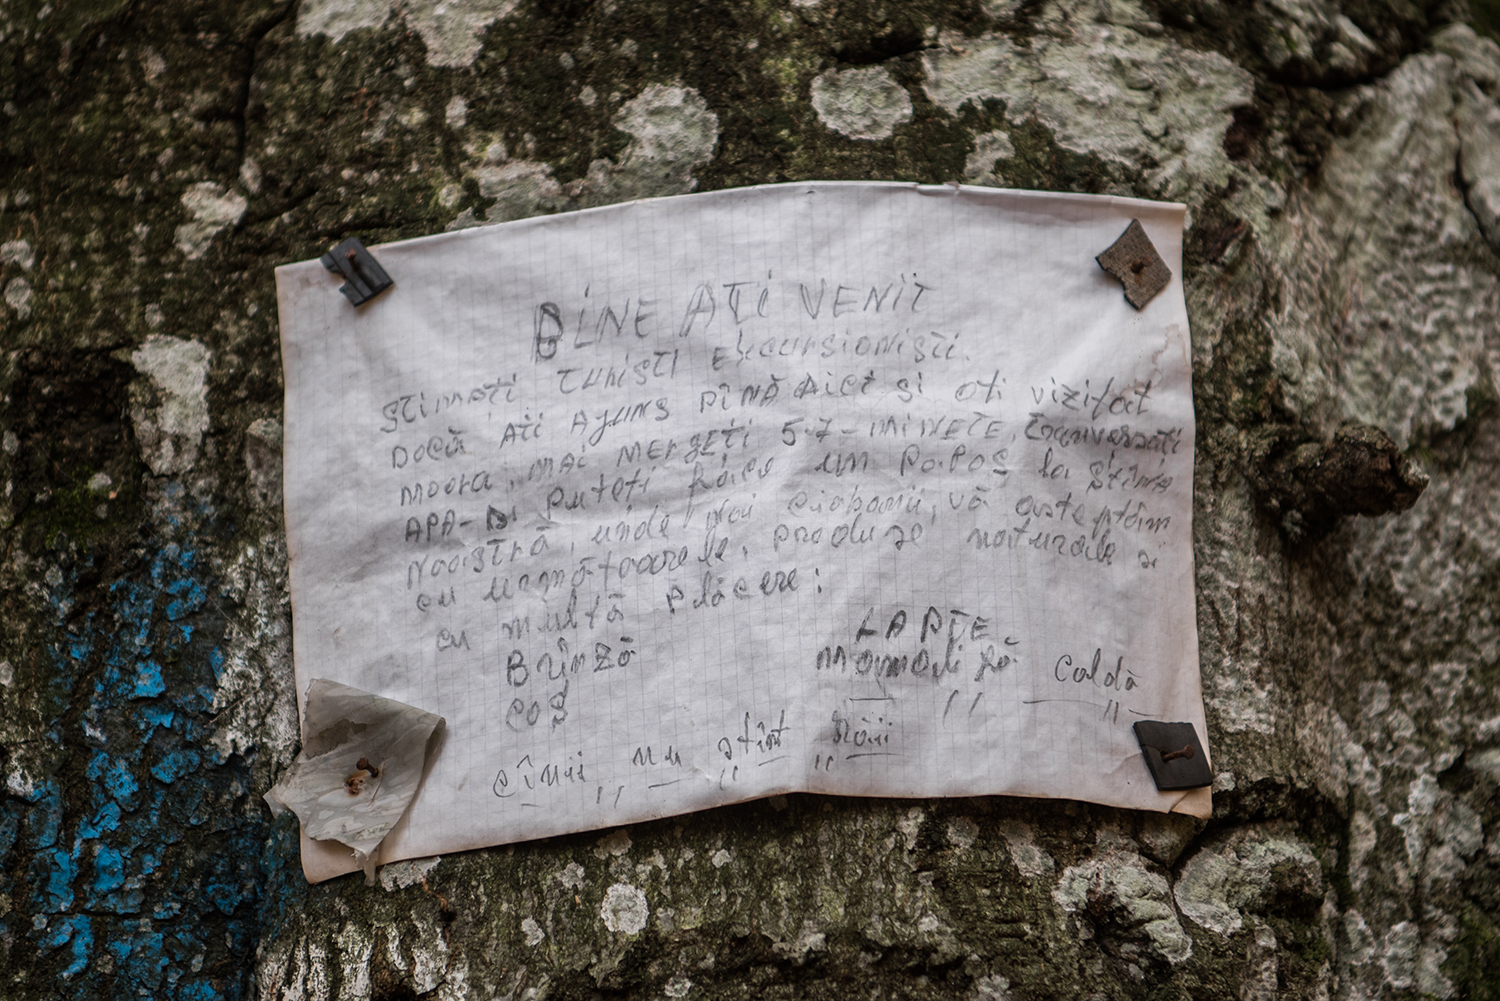 BINE AȚI VENIT
Stimați turiști excursioniști.
Docă Ați Ajuns PÎNĂ Aici și ați vizitat
moara, MAI MERGEȚI 5-7-MINUTE, traversați
APA- și Puteți face un Popas la stîna
Noastră, unde noi ciobanii, vă așteptăm
cu următoarele, produse naturale și
cu multă plăcere:
Brînză LAPTE
Coș mămăligă caldă
cîinii nu sînt răii